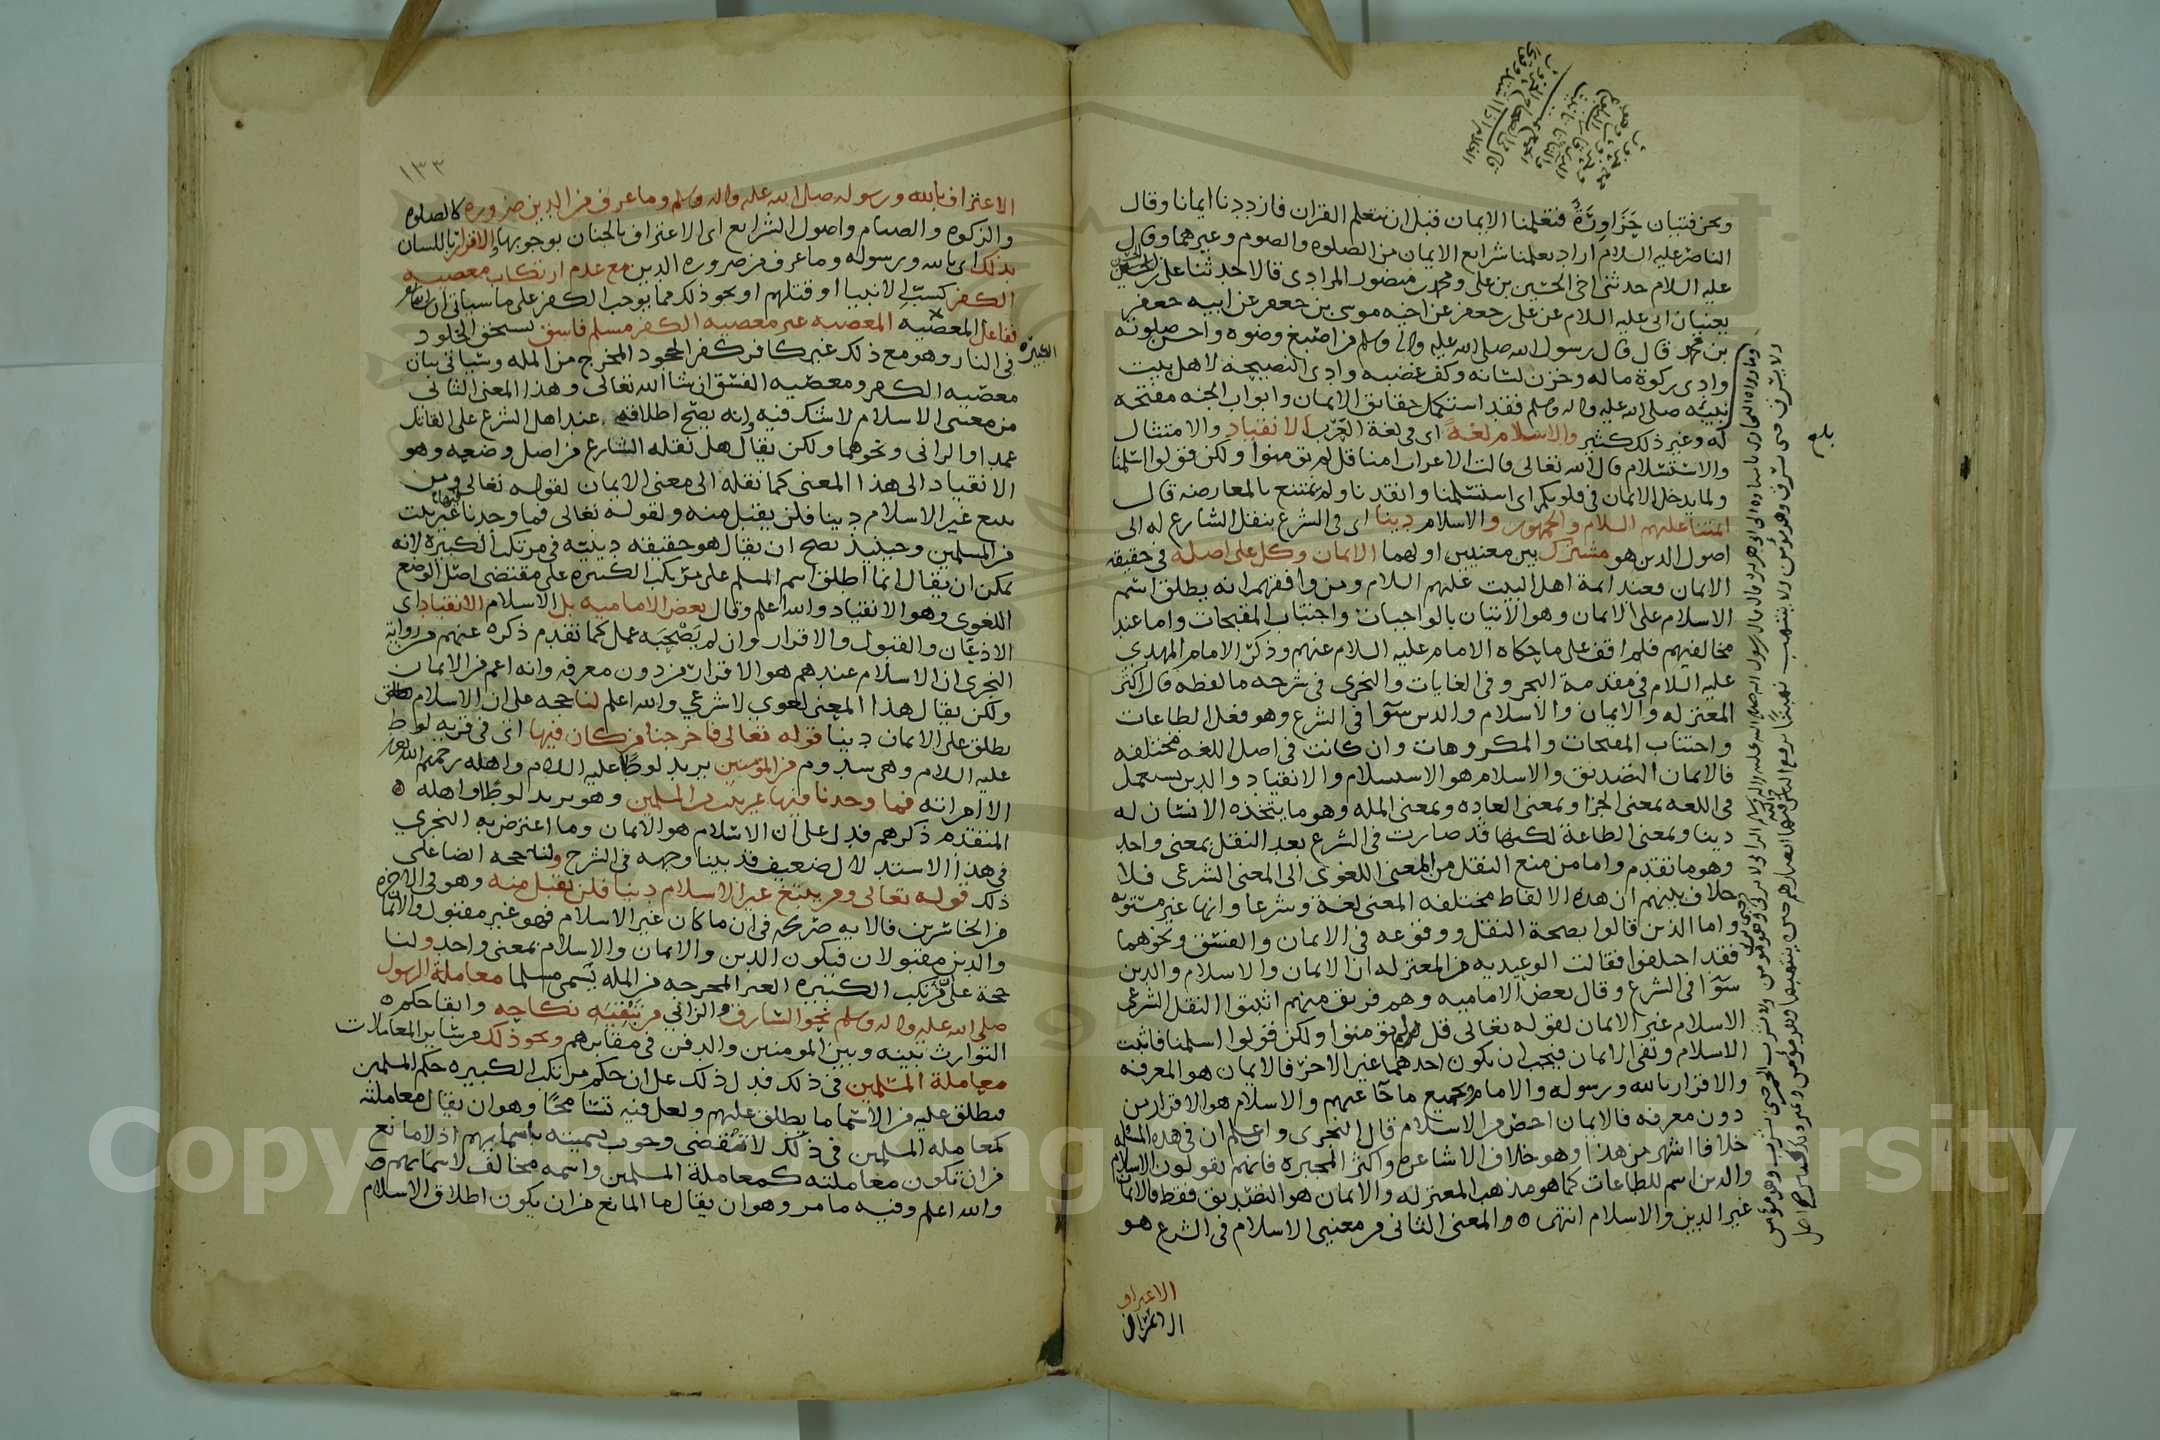 ونحن فتيان حَزَاوِرَةٌ فتعلمنا الايمان قبل ان نتعلم القران فازددنا ايمانا وقال
الناصر عليه السلام اراد تعلمنا شرايع الايمان من الصلوه والصوم وغيرهما وقال
عليه السلام حدثني اخي الحسين بن علي ومحمد بن منصور المرادي قالا حدثنا علي بن الحسن
يعنيان ابي عليه السلام عن علي بن جعفر عن اخيه موسى بن جعفر عن ابيه جعفر
بن محمد قال قال رسول الله صلى الله عليه واله وسلم من اصبغ وضوه واحسن صلوته
وادى زكوة ماله وخزن لسانه وكف غضبه وادى النصيحة لاهل بيت
نبيه صلى الله عليه واله وسلم فقد استكمل حقايق الايمان وابواب الجنه مفتحه
له وغير ذلك كثير والاسلام لغةً اى في لغة العرب الانقياد والامتثال
والاستسلام قال الله تعالى قالت الاعراب امنا قل لم تؤمنوا ولكن قولوا اسلمنا
ولما يدخل الايمان في قلوبكم اى استسلمنا وانقدنا ولم نمتنع بالمعارضه قال
ائمتنا عليهم السلام والجمهور والاسلام دينا اى في الشرع بنقل الشارع له الى
اصول الدين هو مشترك بين معنيين اولهما الايمان وكل على اصله في حقيقة
الايمان فعند ائمة اهل البيت عليهم السلام ومن وافقهم انه يطلق اسم
الاسلام على الايمان وهو الاتيان بالواجبات واجتناب المقبحات واما عند
مخالفيهم فلم اقف على ما حكاه الامام عليه السلام عنهم وذكر الامام المهدي
عليه السلام في مقدمة البحر وفي الغايات والنجري في شرحه ما لفظه قال اكثر
المعتزله والايمان والاسلام والدين سوآ في الشرع وهو فعل الطاعات
واجتناب المقبحات والمكروهات وان كانت في اصل اللغه مختلفه
فالايمان التصديق والاسلام هو الاستسلام والانقياد والدين يستعمل
في اللغه بمعنى الجزا وبمعنى العاده وبمعنى المله وهو ما يتخذه الانسان له
دينا وبمعنى الطاعة لكنها قد صارت في الشرع بعد النقل بمعنى واحد
وهو ما تقدم واما من منع النقل من المعنى اللغوى الى المعنى الشرعي فلا
خلاف بينهم ان هذه الالفاظ مختلفه المعنى لغة وشرعا وانها غير مستويه
واما الذين قالوا بصحة النقل ووقوعه في الايمان والفسق ونحوهما
فقد اختلفوا فقالت الوعيديه من المعتزله ان الايمان والاسلام والدين
سوآ في الشرع وقال بعض الاماميه وهم فريق منهم اثبتوا النقل الشرعي
الاسلام غير الايمان لقوله تعالى قل لم تؤمنوا ولكن قولوا اسلمنا فاثبت
الاسلام ونفى الايمان فيجب ان يكون احدهما غير الاخر فالايمان هو المعرفه
والاقرار بالله ورسوله والامام وبجميع ما جآ عنهم والاسلام هو الاقرار من
دون معرفه فالايمان اخص من الاسلام قال النجري واعلم ان في هذه المسئله
خلافا اشهر من هذا وهو خلاف الاشاعره واكثر المجبره فانهم يقولون الاسلام
والدين اسم للطاعات كما هو مذهب المعتزله والايمان هو التصديق فقط فالايمان
غير الدين والاسلام انتهى ه والمعنى الثاني من معنيي الاسلام في الشرع هو
الاعتراف
الاعتراف
بلغ
١٣٣
الاعتراف بالله ورسوله صلى الله عليه واله وسلم وما عرف من الدين ضروره كالصلوه
والزكوه والصيام واصول الشرايع اى الاعتراف بالجنان بوجوبها والاقرار باللسان
بذلك اى بالله ورسوله وما عرف من ضروره الدين مع عدم ارتكاب معصيه
الكفر كسب الانبيا او قتلهم او نحو ذلك مما يوجب الكفر على ما سياتي ان شا الله
ففاعل المعصيه المعصيه غير معصيه الكفر مسلم فاسق يستحق الخلود
الكبيره
في النار وهو مع ذلك غير كافر كفر الجحود المخرج من المله وسياتي بيان
معصيه الكفر ومعصيه الفسق ان شا الله تعالى وهذا المعنى الثاني
من معنى الاسلام لا شك فيه وانه يصح اطلاقه عند اهل الشرع على القاتل
عمدا والزاني ونحوهما ولكن يقال هل نقله الشارع من اصل وضعه وهو
الانقياد الى هذا المعنى كما نقله الى معنى الايمان لقوله تعالى ومن
يبتغ غير الاسلام دينا فلن يقبل منه ولقوله تعالى فما وجدنا فيها غير بيت
من المسلمين وحينئذ يصح ان يقال هو حقيقه دينيه في مرتكب الكبيره لانه
يمكن ان يقال انما اطلق اسم المسلم على مرتكب الكبيره على مقتضى اصل الوضع
اللغوي وهو الانقياد والله اعلم وقال بعض الاماميه بل الاسلام الانقياد اى
الاذعان والقبول والاقرار وان لم يَصْحَبه عمل كما تقدم ذكره عنهم من رواية
النجري ان الاسلام عندهم هو الاقرار من دون معرفه وانه اعم من الايمان
ولكن يقال هذا المعنى لغوي لا شرعي والله اعلم لنا حجه على ان الاسلام
يطلق على الايمان دينا قوله تعالى فاخرجنا من كان فيها اى في قريه لوط
عليه السلام وهي سدوم من المؤمنين يريد لوطا عليه السلام واهله رحمهم الله تعالى
الا امراته فما وجدنا فيها غير بيت من المسلمين وهو يريد لوطا واهله ه
المتقدم ذكرهم فدل على ان الاسلام هو الايمان وما اعترض به النجري
في هذا الاستدلال ضعيف قد بينا وجهه في الشرح ولنا حجه ايضا على
ذلك قوله تعالى ومن يبتغ غير الاسلام دينا فلن يقبل منه وهو في الاخره
من الخاسرين فالايه صريحه في ان ما كان غير الاسلام فهو غير مقبول والايمان
والدين مقبولان فيكون الدين والايمان والاسلام بمعنى واحد ولنا
حجة على مرتكب الكبيره الغير المخرجه من المله يسمى مسلما معاملة الرسول
صلى الله عليه واله وسلم نحو السارق والزاني من تَبْقِيَه نكاحه وابقا حكم
التوارث بينه وبين المومنين والدفن في مقابرهم ونحو ذلك من ساير المعاملات
معاملة المسلمين في ذلك فدل ذلك على ان حكم مرتكب الكبيره حكم المسلمين
فيطلق عليه من الاسما ما يطلق عليهم ولعل فيه تسامحًا وهو ان يقال معاملته
كمعامله المسلمين في ذلك لا تقتضي وجوب تسميته باسمايهم اذ لا مانع
من ان تكون معاملته كمعاملة المسلمين واسمه مخالف لاسمايهم
والله اعلم وفيه ما مر وهو ان يقال ما المانع من ان يكون اطلاق الاسلام